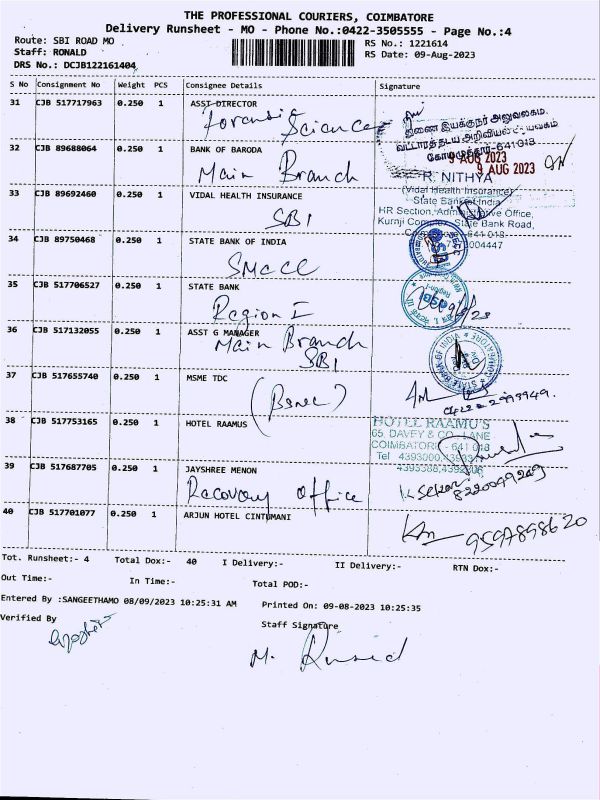 THE PROFESSIONAL COURIERS, COIMBATORE
Delivery Runsheet - MO - Phone No.:0422-3505555 - Page No.:4
Route: SBI ROAD MO
RS No.: 1221614
Staff: RONALD
RS Date: 09-Aug-2023
DRS No.: DCJB122161404
S No Consignment No Weight PCS Consignee Details Signature
31 CJB 517717963 0.250 1 ASST DIRECTOR
Forensic Sciences
இணை இயக்குநர் அலுவலகம்,
வட்டாரத் தடய அறிவியல்
கோயமுத்தூர்-641 018
32 CJB 89688064 0.250 1 BANK OF BARODA
Main Branch
9 AUG 2023
9 AUG 2023
R. NITHYA
33 CJB 89692460 0.250 1 VIDAL HEALTH INSURANCE
SBI
(Vidal Health Insurance)
State Bank of India
HR Section, Administrative Office,
Kuraji Complex, State Bank Road,
641 018
34 CJB 89750468 0.250 1 STATE BANK OF INDIA
SMECC
35 CJB 517706527 0.250 1 STATE BANK
Region I
36 CJB 517132055 0.250 1 ASST G MANAGER
Main Branch
SBI
37 CJB 517655740 0.250 1 MSME TDC
0422-2993949.
38 CJB 517753165 0.250 1 HOTEL RAAMUS
HOTEL RAAMU'S
65, DAVEY & CO. LANE
COIMBATORE - 641 018
Tel 4393000,
39 CJB 517687705 0.250 1 JAYSHREE MENON
Recovery office
8220049249
40 CJB 517701077 0.250 1 ARJUN HOTEL CINTUMANI
9597898620
Tot. Runsheet:- 4 Total Dox:- 40 I Delivery:- II Delivery:- RTN Dox:-
Out Time:- In Time:- Total POD:-
Entered By :SANGEETHAMO 08/09/2023 10:25:31 AM Printed On: 09-08-2023 10:25:35
Verified By Staff Signature